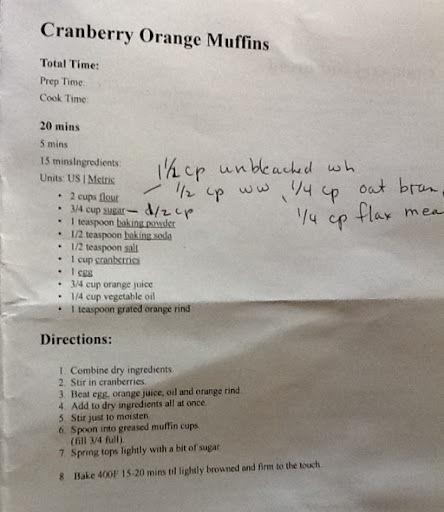 Cranberry Orange Muffins
Total Time:
Prep Time:
Cook Time:
20 mins
5 mins
15 minsIngredients:
Units: US | Metric
1 1/2 cp unbleached wh
1/2 cp ww, 1/4 cp oat bran,
1/4 cp flax mea
2 cups flour
3/4 cup sugar — 1/2 cp
1 teaspoon baking powder
1/2 teaspoon baking soda
1/2 teaspoon salt
1 cup cranberries
1 egg
3/4 cup orange juice
1/4 cup vegetable oil
1 teaspoon grated orange rind
Directions:
1 Combine dry ingredients.
2. Stir in cranberries.
3. Beat egg, orange juice, oil and orange rind.
4. Add to dry ingredients all at once.
5. Stir just to moisten.
6. Spoon into greased muffin cups.
(fill 3/4 full).
7 Spring tops lightly with a bit of sugar.
8 Bake 400F 15-20 mins til lightly browned and firm to the touch.